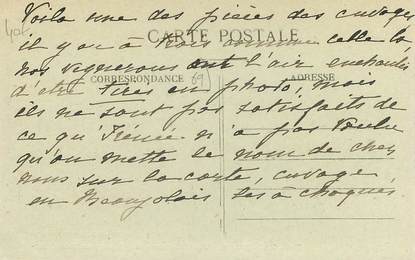 Voila une des pièces des cuvages
il y en a trois comme celle la
CARTE POSTALE
nos vignerons ont l'air enchantés
CORRESPONDANCE
ADRESSE
d'être tirés en photo, mais
ils ne sont pas satisfaits de
ce qu'Irénée n'a pas voulu
qu'on mette le nom de chez
nous sur la carte, cuvage
en Beaujolais les a choqués